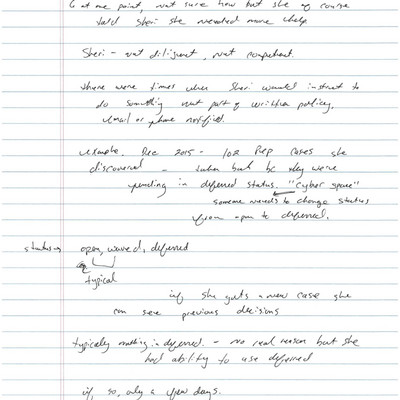 at one point, not sure how but she of course
told Sheri she needed more help
Sheri - not diligent, not competent.
there were times when Sheri would instruct to
do something not part of written policy,
email or phone notified.
example. Dec 2015 - 102 Rep cases she
discovered - taken but bc they were
pending in deferred status. "cyber space"
someone needs to change status
from open to deferred.
open, waived, deferred
typical
if she gets a new case she
can see previous decisions
typically nothing in deferred. - no real reason but she
had ability to use deferred
if so, only a few days.